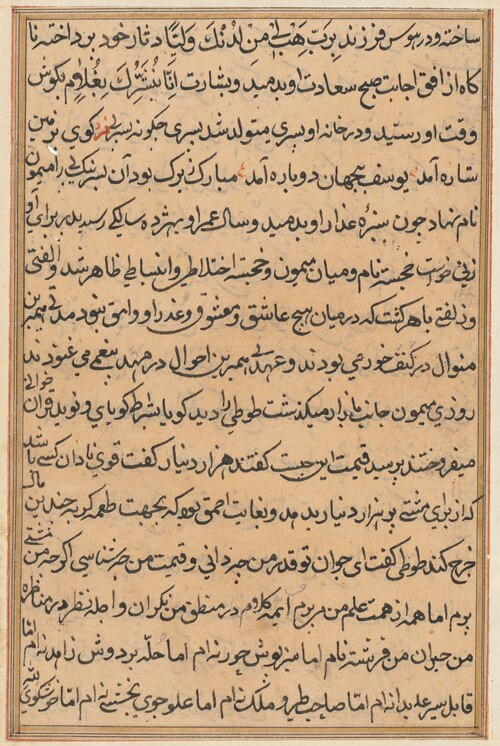 ساخته و در هوس فرزند برب هب لی من لدنک ولیا دثار خود پرداخته تا
کاه از افق اجابت صبح سعادت او بدمید و بشارت انا نبشرک بغلام بکوش
وقت او رسید و در خانه او پسری متولد شد پسری چکونه کوی زمین
ستاره آمد یوسف بجهان دوباره آمد مبارک بزرک بود آن پسر نیک پی را میمون
نام نهاد چون سبزه عذار او بدمید و سال عمر او بهژده سالکی رسید پدر برای او
زنی خواست خجسته نام و میان میمون و خجسته اختلاطی و انبساطی ظاهر شد و الفتی
و زلفتی باهر کشت که در میان هیچ عاشق و معشوق و عذرا و وامق نبود مدتی همبرین
منوال در کنف خود می بودند و عهدی همبرین احوال در مهد تنعم می غنودند
روزی میمون جانب بازار میکذشت طوطی را دید کویا شرط کویای و نوید قران خوانی
میفروختند پرسید قیمت این چیست کفتند هزار دینار کفت قوی نادان کسی باشد
که از برای مشتی پر هزار دینار بدهد و بغایت احمق بود که بجهت طعمه کربه چندین مال
خرج کند طوطی کفت ای جوان تو قدر من چه دانی و قیمت من چه شناسی اکرچه من مشتی
پرم اما همه از همت علم می پرم ایمه کلام در منطق من نکران و اجله نظر در مناظره
من حیران من فرشته نام اما سبز پوش حور نه ام اما حله بر دوش زاهد نه ام اما
قابل سیر عابد نه ام اما صاحب طیر و ملک نه ام اما علو جوی نه ام اما خوشکوی